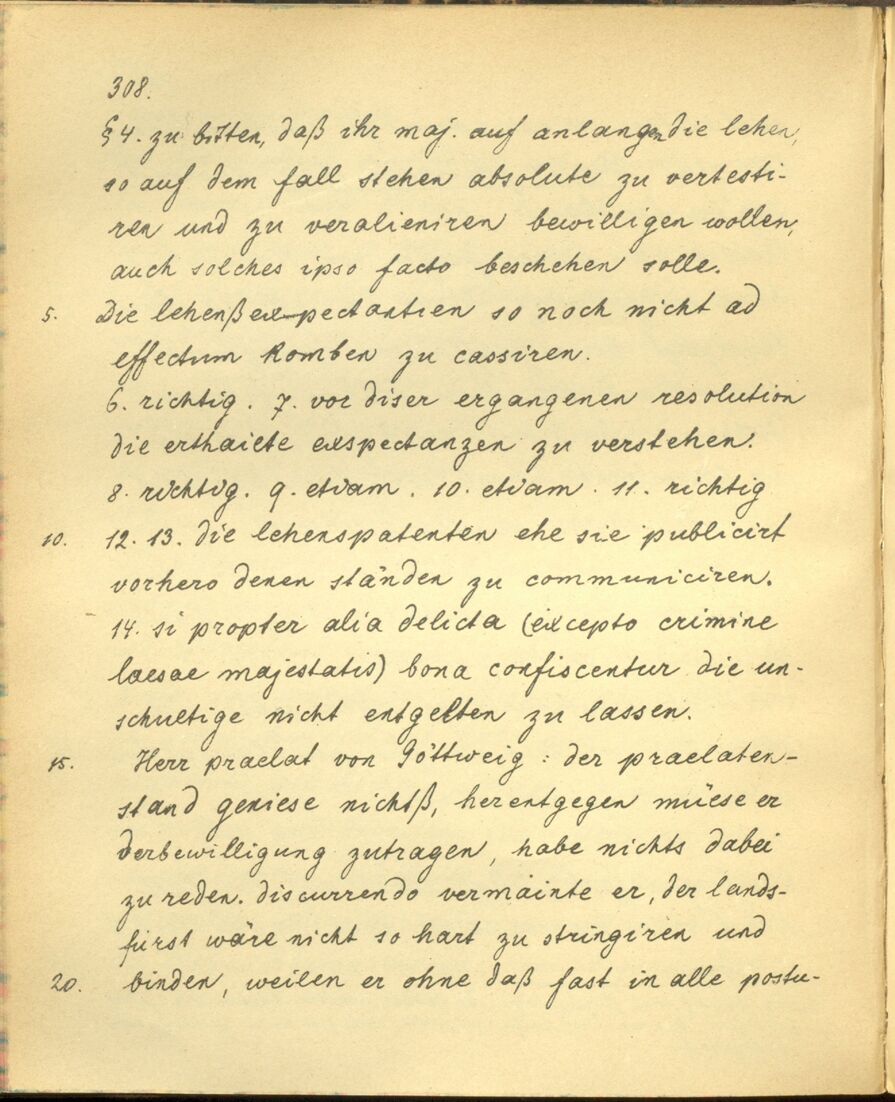 308.
§ 4. zu bitten, daß ihr maj. auf anlangen die lehen,
so auf dem fall stehen absolute zu vertesti-
ren und zu veralieniren bewilligen wollen,
auch solches ipso facto beschehen solle.
5. Die lehenß expectantien so noch nicht ad
effectum komben zu cassiren.
6. richtig. 7. vor diser ergangenen resolution
die erthailte exspectanzen zu verstehen.
8. richtig. 9. etiam. 10. etiam. 11. richtig
10. 12. 13. die lehenspatenten ehe sie publicirt
vorhero denen ständen zu communiciren.
14. si propter alia delicta (excepto crimine
laesae majestatis) bona confiscentur die un-
schultige nicht entgelten zu lassen.
15. Herr praelat von Göttweig: der praelaten-
stand geniese nichtß, herentgegen müese er
derbewilligung zutragen, habe nichts dabei
zu reden. discurrendo vermainte er, der lands-
fürst wäre nicht so hart zu stringiren und
20. binden, weilen er ohne daß fast in alle postu-